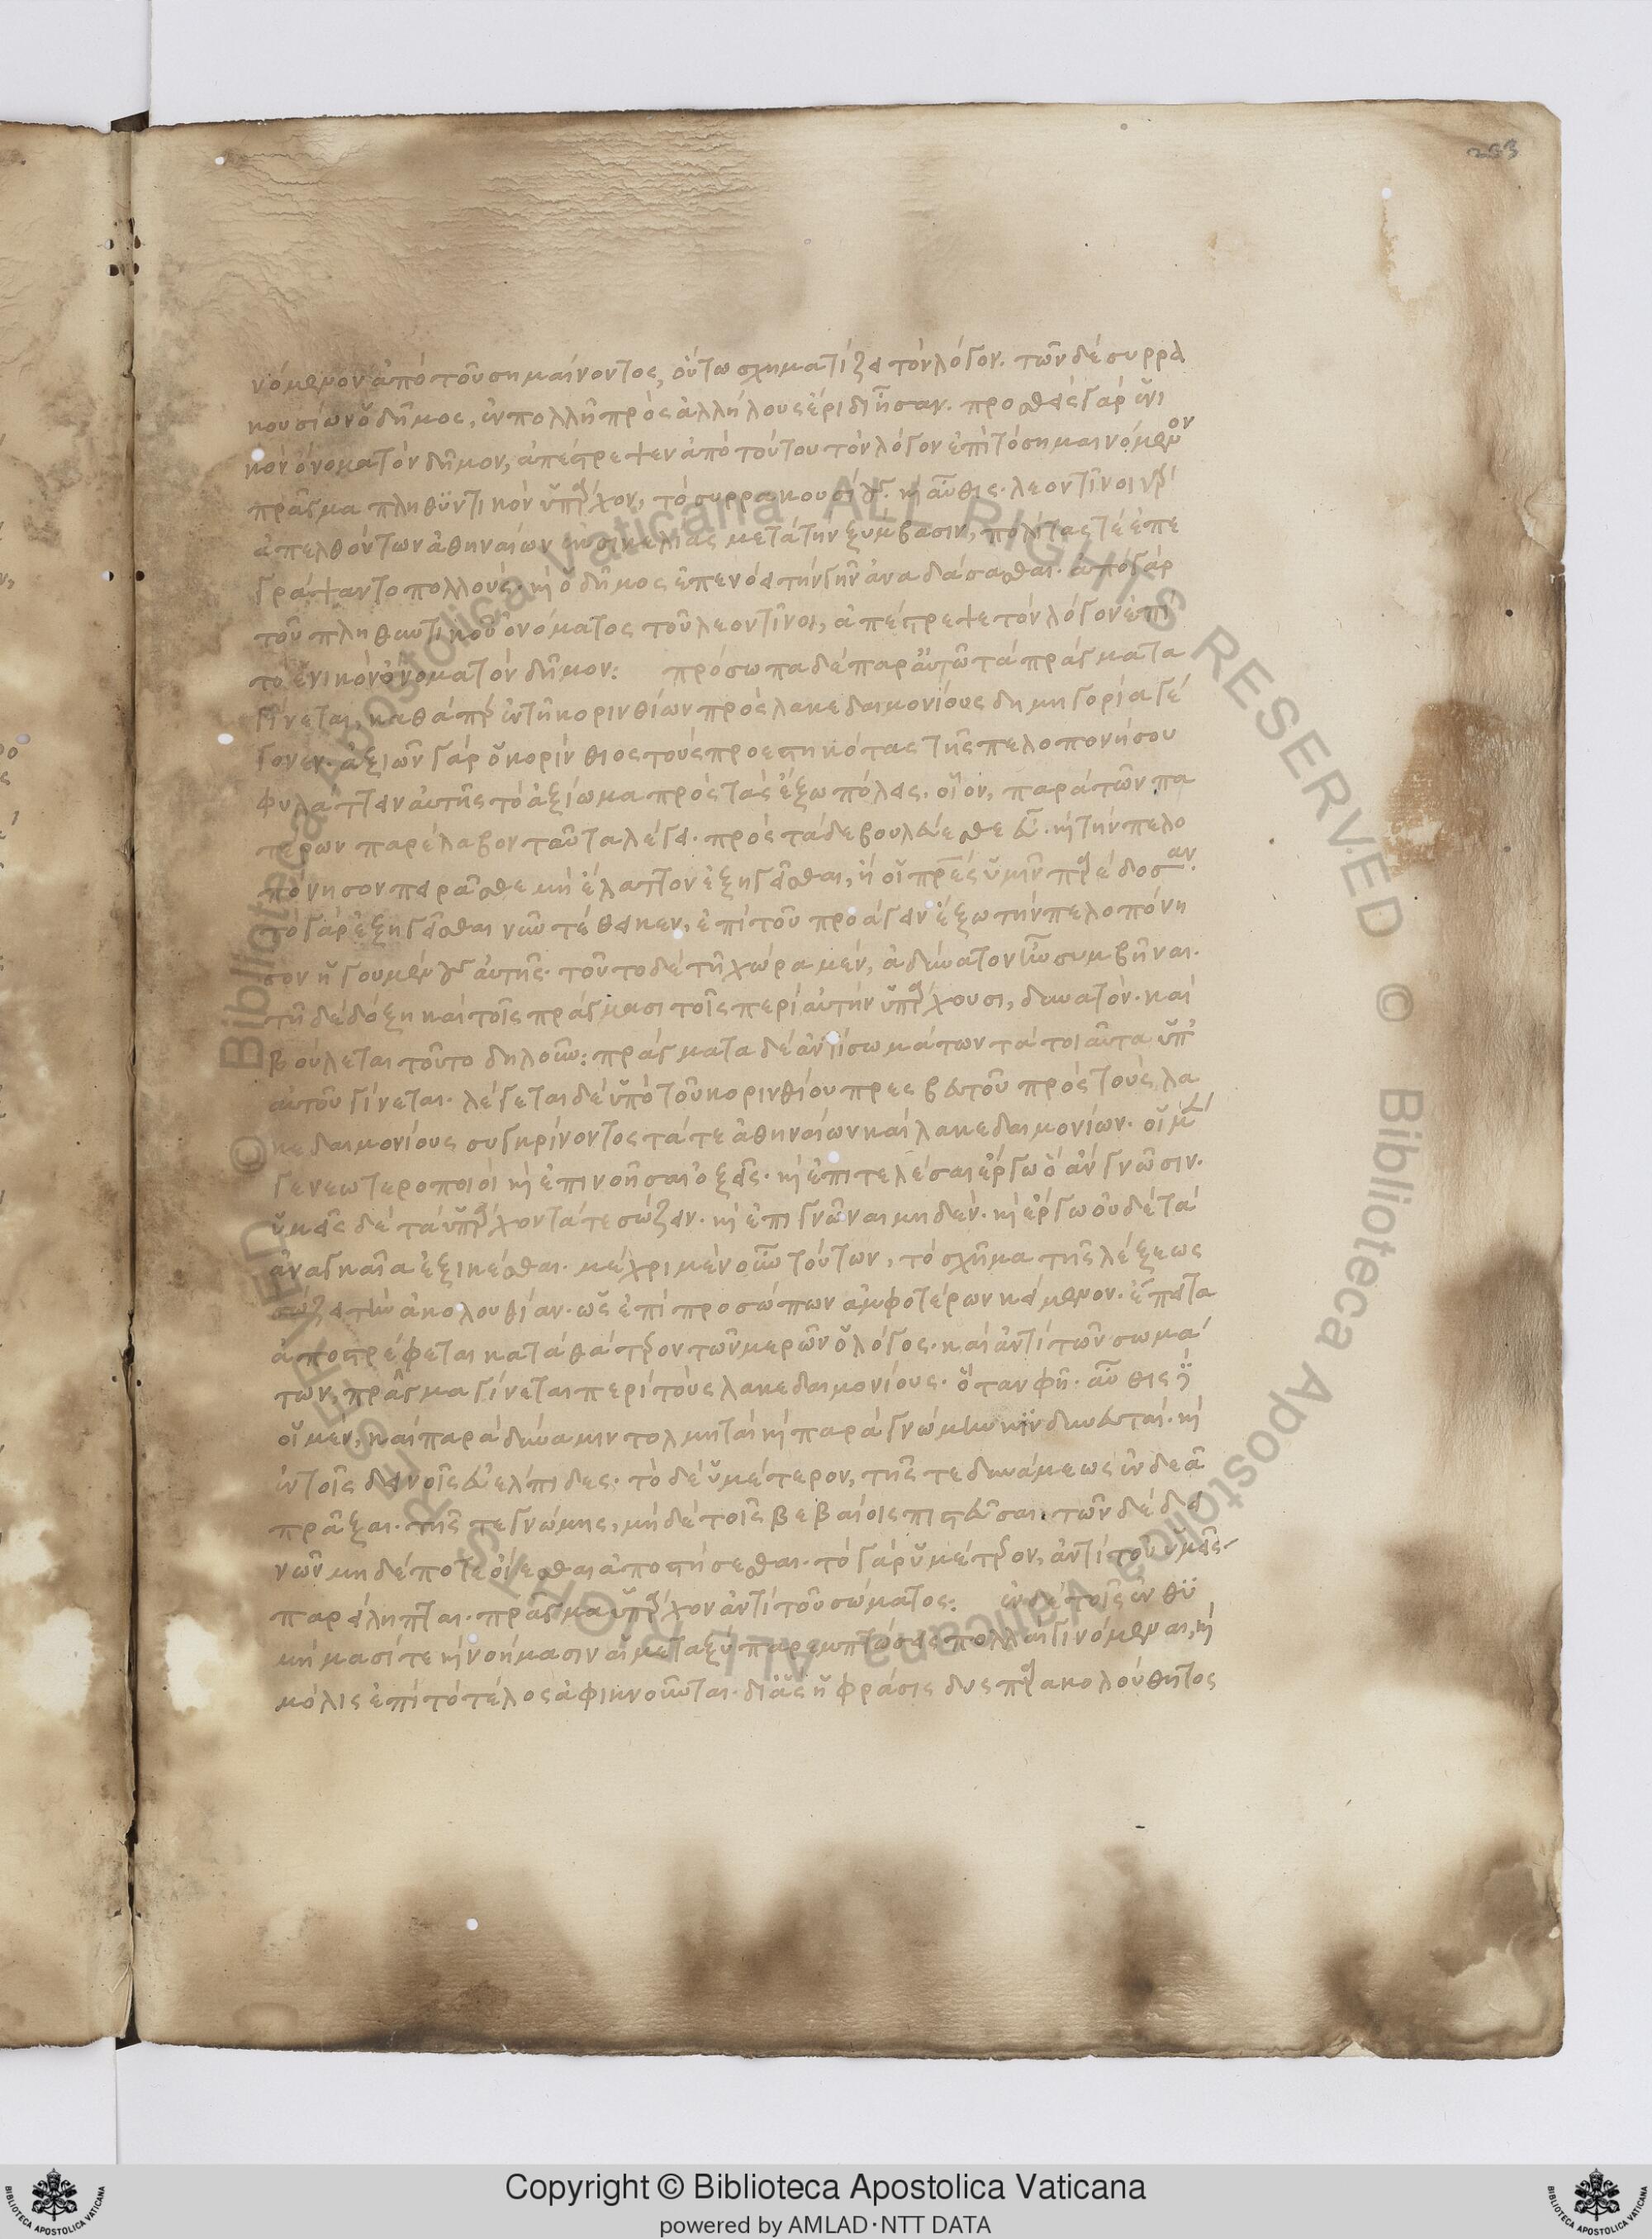 233
νόμενον ἀπὸ τοῦ σημαίνοντος, οὕτω σχηματίζει τὸν λόγον. τῶν δὲ συρρα
κουσίων ὁ δῆμος, ἐν πολλῇ πρὸς ἀλλήλους ἔριδι ἦσαν. προθεὶς γὰρ ἑνι
κὸν ὄνομα τὸν δῆμον, ἀπέστρεψεν ἀπὸ τούτου τὸν λόγον ἐπὶ τὸ σημαινόμενον
πρᾶγμα πληθϋντικὸν ὑπάρχον, τὸ συρρακούσιοι. καὶ αὖθις. λεοντῖνοι γὰρ
ἀπελθόντων ἀθηναίων ἐκ σικελίας μετὰ τὴν ξύμβασιν, πολίτας τὲ ἐπε
γράψαντο πολλούς. καὶ ὁ δῆμος ἐπενόει τὴν γῆν ἀναδάσασθαι. ἀπὸ γὰρ
τοῦ πληθυντικοῦ ὀνόματος τοῦ λεοντῖνοι, ἀπέστρεψε τὸν λόγον ἐπὶ
τὸ ἑνικὸν ὄνομα τὸν δῆμον: πρόσωπα δὲ παρ' αὐτῶ τὰ πράγματα
γίνεται, καθάπερ ἐν τῆ κορινθίων πρὸς λακεδαιμονίους δημηγορία γέ
γονεν. ἀξιῶν γὰρ ὁ κορίνθιος τοὺς προεστηκότας τῆς πελοπονήσου
φυλάττειν αὐτῆς τὸ ἀξίωμα πρὸς τὰς ἔξω πόλεις. οἷον, παρὰ τῶν πα
τέρων παρέλαβον ταῦτα λέγει. πρὸς τάδε βουλεύεσθε εὖ. καὶ τὴν πελο
πόνησον πειρᾶσθε μὴ ἐλάττον ἐξηγεῖσθαι, ἢ οἱ πρες ὑμῖν παρέδοσαν.
τὸ γὰρ ἐξηγεῖσθαι νῦν τέθεικεν, ἐπὶ τοῦ προάγειν ἔξω τὴν πελοπόνη
σον ἡγουμένους αὐτῆς. τοῦτο δὲ τῆ χώρα μὲν, ἀδύνατον ἦν συμβῆναι.
τῆ δὲ δόξη καὶ τοῖς πράγμασι τοῖς περὶ αὐτὴν ὑπάρχουσι, δυνατόν. καὶ
βούλεται τοῦτο δηλοῦν: πράγματα δὲ ἀντὶ σωμάτων τὰ τοιαῦτα ὑπ'
αὐτοῦ γίνεται. λέγεται δὲ ὑπὸ τοῦ κορινθίου πρεσβευτοῦ πρὸς τοὺς λα
κεδαιμονίους συγκρίνοντος τά τε ἀθηναίων καὶ λακεδαιμονίων. οἱ μέν
γε νεωτεροποιοὶ καὶ ἐπινοῆσαι ὀξεῖς. καὶ ἐπιτελέσαι ἔργω ὃ ἂν γνῶσιν.
ὑμεῖς δὲ τὰ ὑπάρχοντά τε σώζειν. καὶ ἐπιγνῶναι μηδέν. καὶ ἔργω οὐδὲ τὰ
ἀναγκαῖα ἐξικέσθαι. μέχρι μὲν οὖν τούτων, τὸ σχῆμα τῆς λέξεως
σώζει τὴν ἀκολουθίαν. ὡς ἐπὶ προσώπων ἀμφοτέρων κείμενον. ἔπειτα
ἀποστρέφεται κατὰ θάτερον τῶν μερῶν ὁ λόγος. καὶ ἀντὶ τῶν σωμά
των, πρᾶγμα γίνεται περὶ τοὺς λακεδαιμονίους. ὅταν φῆ. αὖθις
οἱ μεν, καὶ παρὰ δύναμιν τολμηταὶ καὶ παρὰ γνώμην κινδυνευταί. καὶ
ἐν τοῖς δεινοῖς εὐέλπιδες. τὸ δὲ ὑμέτερον, τῆς τε δυνάμεως ἐνδεᾶ
πρᾶξαι. τῆς τε γνώμης, μηδὲ τοῖς βεβαίοις πιστεῦσαι. τῶν δὲ δει
νῶν μηδέποτε οἴεσθαι ἀποστήσεσθαι. τὸ γὰρ ὑμέτερον, ἀντὶ τοῦ ὑμεῖς
παρείληπται. πρᾶγμα ὑπάρχον ἀντὶ τοῦ σώματος: ἐν δὲ τοῖς ἐνθϋ
μήμασί τε καὶ νοήμασιν αἱ μεταξὺ παρεμπτώσεις πολλαὶ γινόμεναι, καὶ
μόλις ἐπὶ τὸ τέλος ἀφικνοῦνται. δι' ἃς ἡ φράσις δυσπαρακολούθητος
Copyright © Biblioteca Apostolica Vaticana
powered by AMLAD·NTT DATA